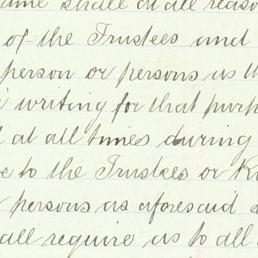 same shall at all reaso
of the Trustees and
person or persons as th
writing for that purp
at all times during
to the Trustees or K
persons as aforesaid
all require as to all